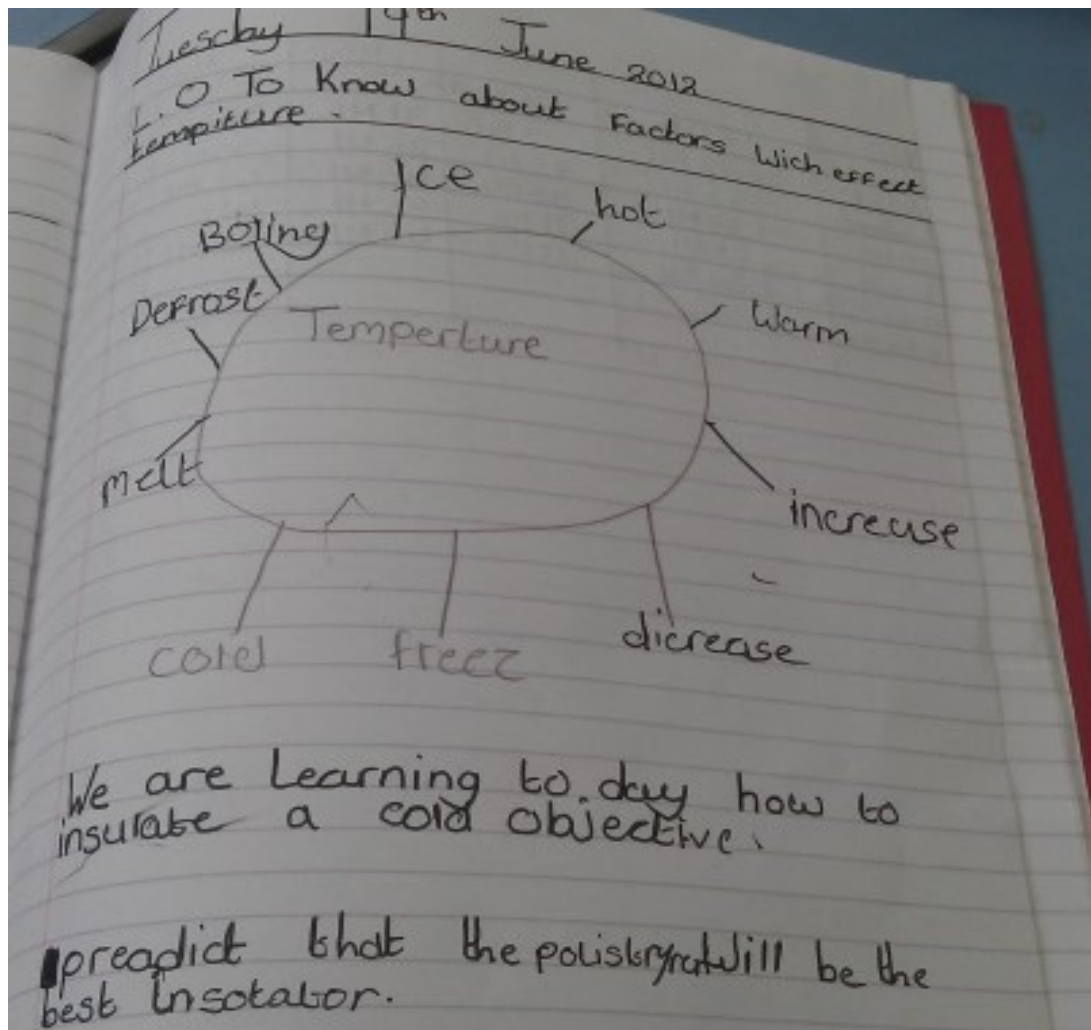 Tuesday 19th June 2012
L.O To Know about Factors Wich effect
tempiture.
Ice
hot
Boiling
Defrost
Temperture
Warm
melt
increase
cold
freez
dicrease
We are Learning to.day how to
insulate a cold objective.
preadict that the will be the
best insolator.